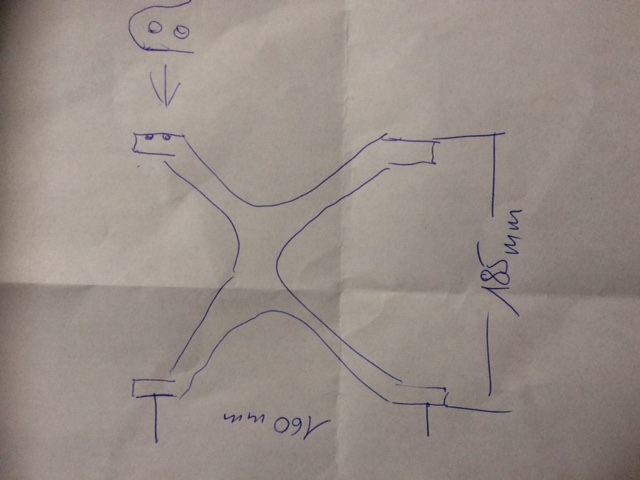 160 mm
185 mm